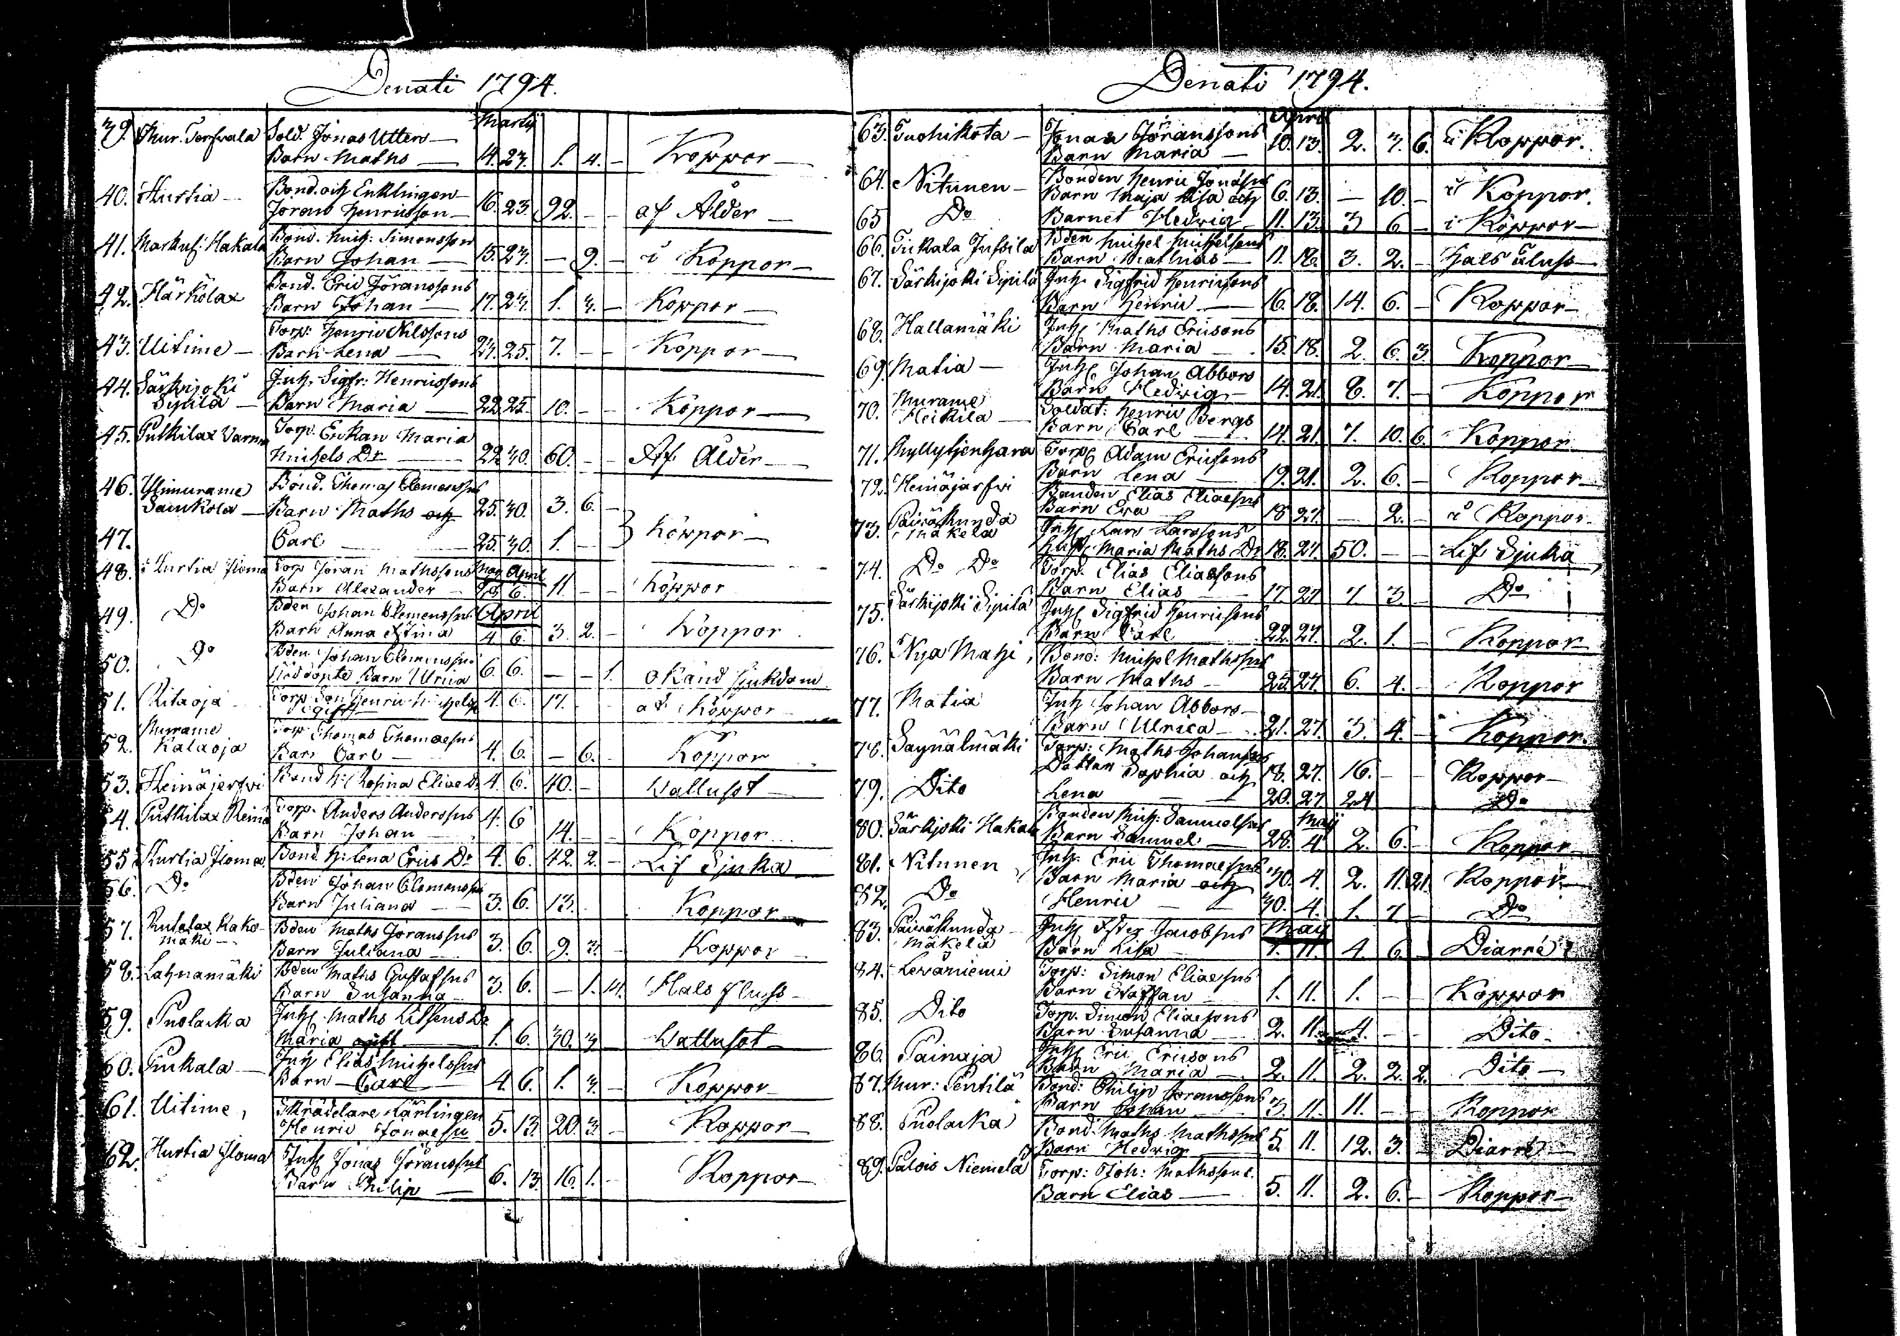 Denati 1794.
Martij
39. Mur. Torfvala Sold. Jonas Utters
Barn Maths 14. 23. 1. 4. Koppor
40. Hurtia Bond. och Enklingen
Jöran Henricsson 16. 23. 92. af Ålder
41. Markus: Hakala Bond. Mich: Simonsson
Barn Johan 15. 23. 9. i Koppor
42. Härkölax Bond. Eric Jöranssons
Barn Johan 17. 23. 1. 3. Koppor
43. Uitime Torp: Henric Nilssons
Barn Lena 23. 25. 7. Koppor
44. Särkijoki Inh. Sigfr: Henricssons
Sipilä Barn Maria 22. 25. 10. Koppor
45. Putkilax Torp. Enkan Maria
Michels Dr 22. 30. 60. Af Ålder
46. Ylimurame Bond. Thomas Clemenssons
Barn Maths och 25. 30. 3. 6.
47. Carl 25. 30. 1. Koppor
48. Hurtia Iloma Torp Jöran Mathssons April
Barn Alexander 6. 11 Koppor
49. Do Bden Johan Clemenssons April
Barn Anna Stina 4. 6. 3. 2. Koppor
50. Do Bden Johan Clemenssons
Nöddöpte Barn Ulrica 6. 6. 1. okänd Sjukdom
51. Ritaoja Torp Henric Michels
4. 6. 17. af Koppor
52. Murame Torp Thomas Thomassons
Kalaoja Barn Carl 4. 6. 6. Koppor
53. Heinäjerfwi Bond H: Elias D. 4. 6. 40. Wallusot
54. Putkilax Torp. Anders Anderssons
Barn Johan 4. 6 14. Koppor
55 Hurtia Iloma Bond H: Lena Erics Dr 4. 6. 42. 2. Lif Sjuka
56. Do Bden Johan Clemenssons
Barn Juliana 3. 6. 13. Koppor
57. Rutalax Kako Bden Maths Jöranssons
mäki Barn Juliana 3. 6. 9. 3. Koppor
58. Lahnamäki Bden Maths Gustafsons
Barn Susanna 3. 6. 1. 14. Hals fluss
59. Puolacka Inh. Maths
Maria 1. 6. 30. 3 Wallusot
60. Tiukala Inh Elias Michelssons
Barn Carl 4. 6. 1. 3. Koppor
61. Uitime, Skrädelare Lärlingen
Henric Jonasson 5. 13. 20. 3. Koppor
62. Hurtia Iloma Inh Jonas Jöranssons
Barn Philip 6. 13. 16. 1. Koppor
Denati 1794.
April
63. Tuohikota Jonas Jöranssons
Barn Maria 10. 13. 2. 7. 6. i Koppor.
64. Nitunen Bonden Henric Jonassons
Barn Maja Lisa och 6. 13. 10. i Koppor.
65 Do Barnet Hedwig 11. 13. 3 6 i Koppor
66. Tiukala Jussila Bden Michel Michelsons
Barn Mathias 11. 18. 3. 2. Hals fluss
67. Särkijoki Sipilä Inh. Sigfrid Henricsons
Barn Henric 16. 18. 14. 6. Koppor
68. Hallamäki Inh Maths Ericsons
Barn Maria 15. 18. 2. 6. 3. Koppor
69. Matia Inh Johan Abbors
Barn Hedwig 14. 21. 8. 7. Koppor
70. Murame Soldat: Henric Bergs
Heikila Barn Carl 14. 21. 7. 10. 6. Koppor
71. Myllykjenhara Torp Adam Ericsons
Barn Lena 19. 21. 2. 6. Koppor
72. Heinäjarfwi Bonden Elias Eliassons
Barn Eva 18 27. 2. i Koppor
73. Päiväkunda Inh Lars Larssons
Mäkelä Maria Maths Dr 18. 27. 50. Lif Sjuka
74. Do Do Torp. Elias Eliassons
Barn Elias 17 27 7 3. Do
75. Särkijoki Sipilä Inh Sigfrid Henricsons
Barn Carl 22. 27. 2. 1. Koppor
76. Nya Mati, Bond: Michel Mathssons
Barn Maths 25. 27. 6. 4. Koppor
77. Matia Inh Johan Abbors
Barn Ulrica 21. 27. 3 4. Koppor.
78. Saynälmäki Torp: Maths Johanssons
Dottren Sophia och 18. 27. 16. Koppor
79. Dito Lena 20. 27 24 Do
80. Särkjoki Hakala Bonden Mich: Samuelsons Maij
Barn Samuel 28. 4. 2. 6. Koppor
81. Nitunen Inh. Eric Thomassons
Barn Maria och 30. 4. 2. 11. 21. Koppor
82. Do Henric 30. 4. 1. 7 Do
83. Päiväkunda Inh Jacobsons Maij
Mäkelä Barn Lisa 1. 11. 4. 6. Diarré
84. Lewäniemi Torp: Simon Eliassons
Barn Staffan 1. 11. 1. Koppor
85. Dito Torp. Simon Eliassons
Barn Susanna 2. 11. 4. Dito
86. Painaja Inh Eric Ericsons
Barn Maria 2. 11. 2. 2. 2. Dito
87. Mur: Pentilä Bond: Philip Jöranssons
Barn Johan 3. 11. 11. Koppor
88. Puolacka Bond: Maths Mathssons
Barn Hedwig 5. 11. 12. 3. Diarré
89. Palois Niemelä Torp: Joh: Mathssons
Barn Elias 5. 11. 2. 6. Koppor